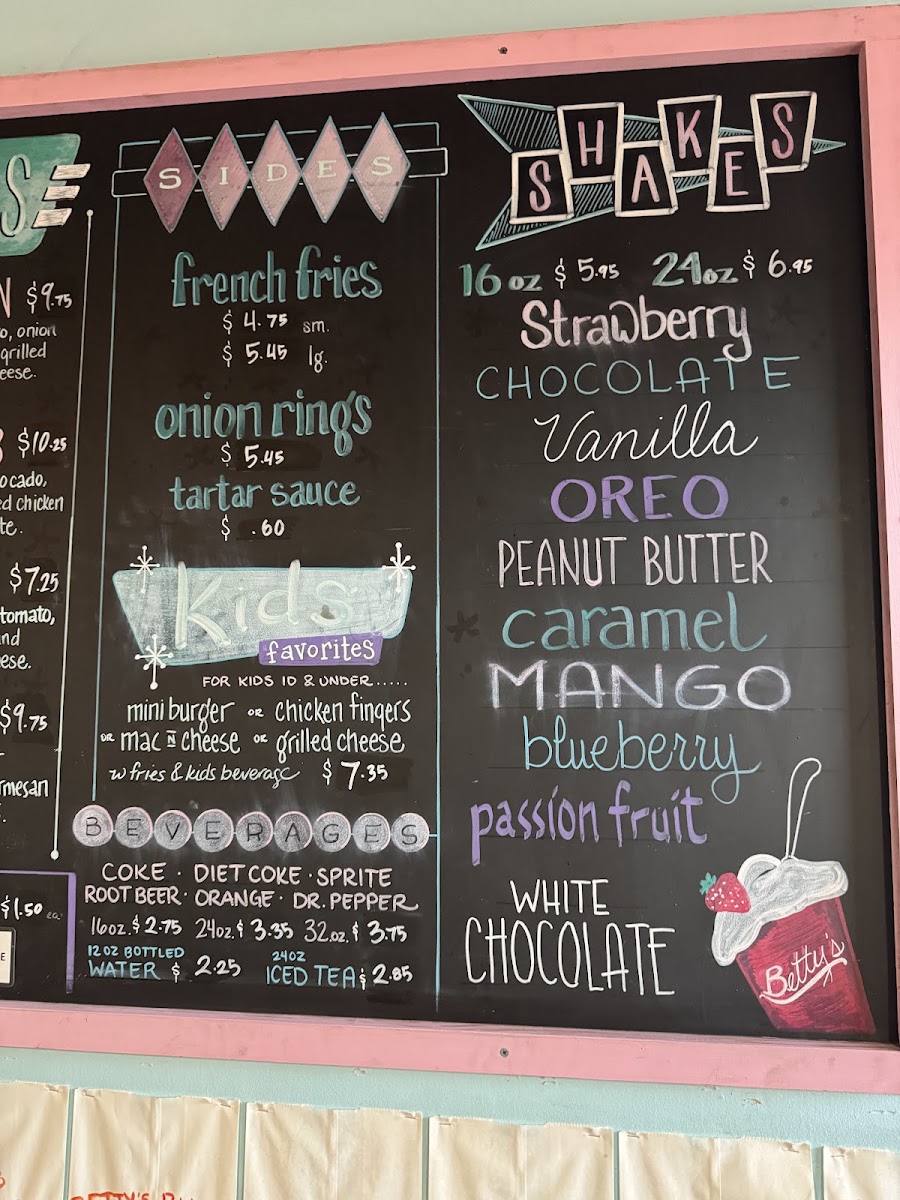 S
N $9.75
o, onion
grilled
eese.
$10.25
ocado,
ed chicken
te.
$7.25
tomato,
nd
ese.
$9.75
rmesan
$1.50 ea.
E
SIDES
french fries
$ 4.75 sm.
$ 5.45 lg.
onion rings
$ 5.45
tartar sauce
$ .60
Kids
favorites
FOR KIDS 10 & UNDER.....
mini burger or chicken fingers
or mac n cheese or grilled cheese
w fries & kids beverage $ 7.35
BEVERAGES
COKE · DIET COKE · SPRITE
ROOT BEER · ORANGE · DR. PEPPER
16oz. $ 2.75 24oz. $ 3.35 32oz. $ 3.75
12 OZ BOTTLED
WATER $ 2.25
24OZ
ICED TEA $ 2.85
SHAKES
16 oz $ 5.95 24oz $ 6.95
Strawberry
CHOCOLATE
Vanilla
OREO
PEANUT BUTTER
caramel
MANGO
blueberry
passion fruit
WHITE
CHOCOLATE
Betty's
BETTY'S